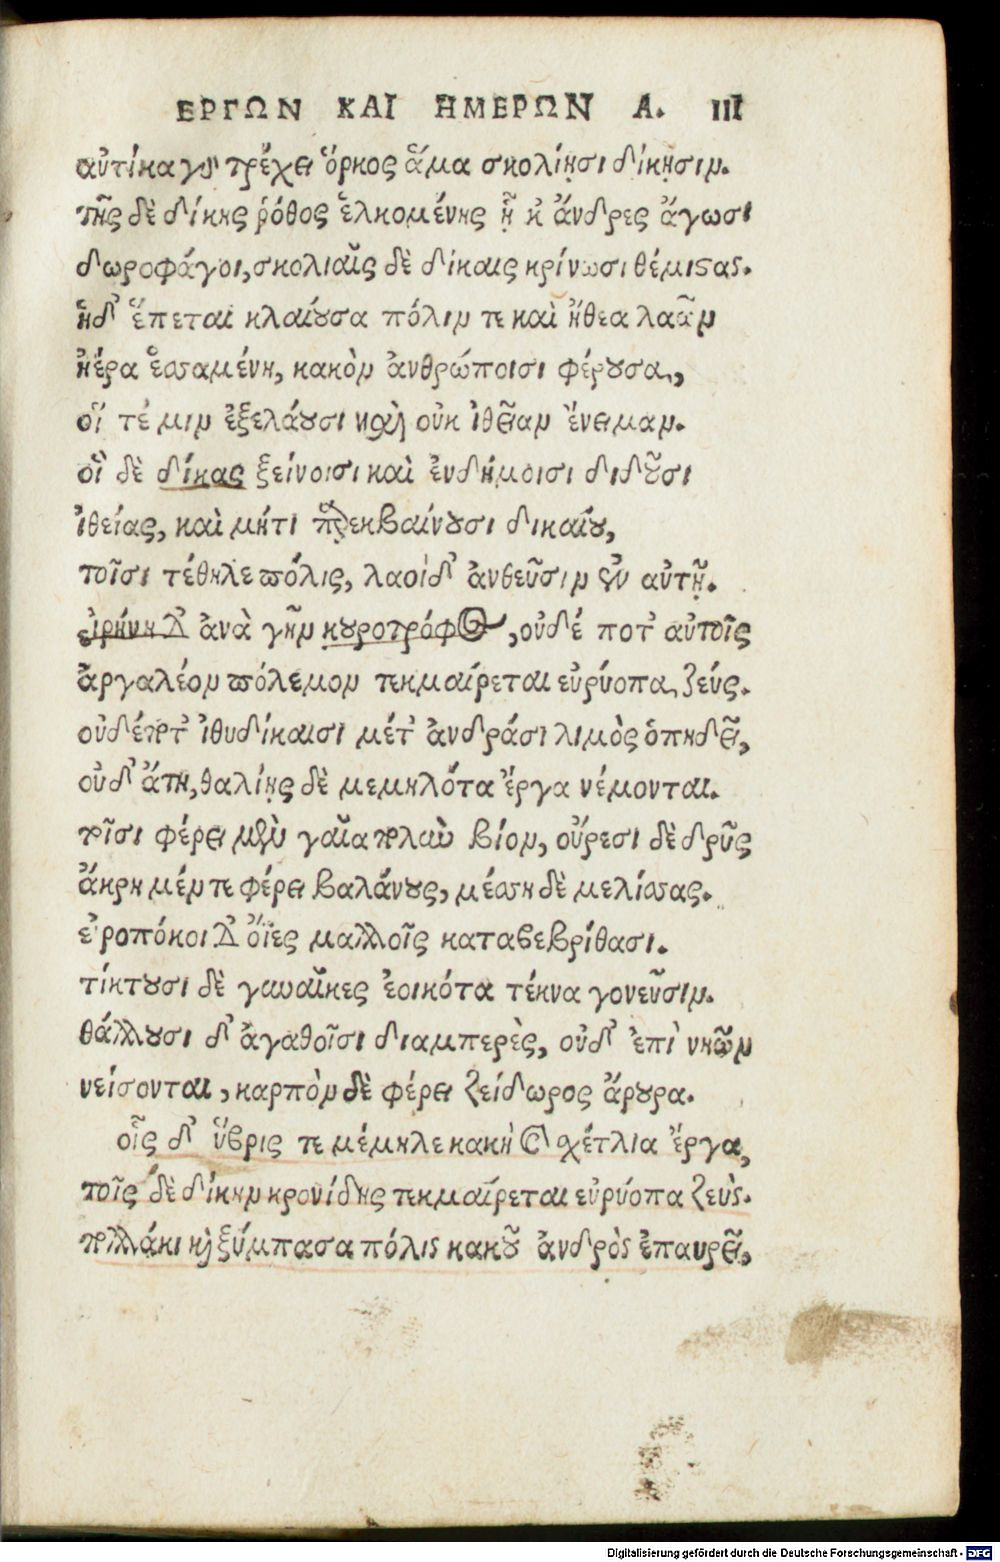 ΕΡΓΩΝ ΚΑΙ ΗΜΕΡΩΝ Α. III
αὐτίκα γὰρ τρέχει ὅρκος ἅμα σκολίῃσι δίκῃσιν.
τῆς δὲ δίκης ῥόθος ἑλκομένης ᾗ κ' ἄνδρες ἄγωσι
δωροφάγοι, σκολιαῖς δὲ δίκαις κρίνωσι θέμιστας.
ἡ δ' ἕπεται κλαίουσα πόλιν τε καὶ ἤθεα λαῶν
ἠέρα ἑσσαμένη, κακὸν ἀνθρώποισι φέρουσα,
οἵ τέ μιν ἐξελάουσι καὶ οὐκ ἰθεῖαν ἔνειμαν.
οἳ δὲ δίκας ξείνοισι καὶ ἐνδήμοισι διδοῦσι
ἰθείας, καὶ μήτι παρεκβαίνουσι δικαίου,
τοῖσι τέθηλε πόλις, λαοὶ δ' ἀνθεῦσιν ἐν αὐτῇ.
εἰρήνη δ' ἀνὰ γῆν κουροτρόφος, οὐδέ ποτ' αὐτοῖς
ἀργαλέον πόλεμον τεκμαίρεται εὐρύοπα ζεύς.
οὐδέποτ' ἰθυδίκαισι μέτ' ἀνδράσι λιμὸς ὀπηδεῖ,
οὐδ' ἄτη, θαλίῃς δὲ μεμηλότα ἔργα νέμονται.
τοῖσι φέρει μὲν γαῖα πολὺν βίον, οὔρεσι δὲ δρῦς
ἄκρη μέν τε φέρει βαλάνους, μέσση δὲ μελίσσας.
εἰροπόκοι δ' ὄϊες μαλλοῖς καταβεβρίθασι.
τίκτουσι δὲ γυναῖκες ἐοικότα τέκνα γονεῦσιν.
θάλλουσι δ' ἀγαθοῖσι διαμπερὲς, οὐδ' ἐπὶ νηῶν
νείσονται, καρπὸν δὲ φέρει ζείδωρος ἄρουρα.
οἷς δ' ὕβρις τε μέμηλε κακὴ καὶ σχέτλια ἔργα,
τοῖς δὲ δίκην κρονίδης τεκμαίρεται εὐρύοπα ζεύς.
πολλάκι καὶ ξύμπασα πόλις κακοῦ ἀνδρὸς ἐπαυρεῖ,
Digitalisierung gefördert durch die Deutsche Forschungsgemeinschaft - DFG